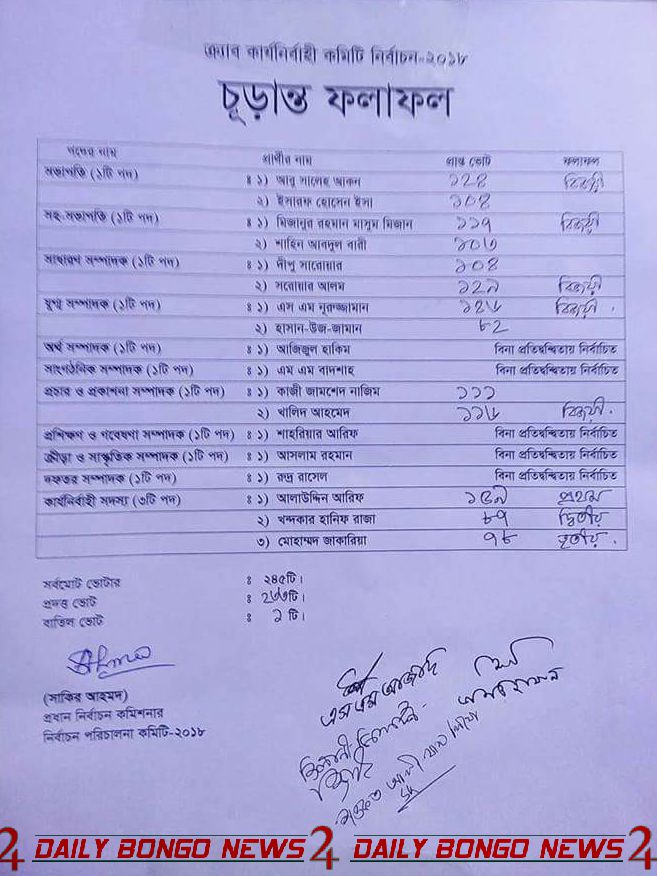 ক্র্যাব কার্যনির্বাহী কমিটি নির্বাচন-২০১৮
চূড়ান্ত ফলাফল
পদের নাম প্রার্থীর নাম প্রাপ্ত ভোট ফলাফল
সভাপতি (১টি পদ) ঃ ১) আবু সালেহ আকন ১২৪ বিজয়ী
২) ইসারফ হোসেন ইসা ১০৪
সহ-সভাপতি (১টি পদ) ঃ ১) মিজানুর রহমান মাসুম মিজান ১১৭ বিজয়ী
২) শাহিন আবদুল বারী ১০৬
সাধারণ সম্পাদক (১টি পদ) ঃ ১) দীপু সারোয়ার ১০৪
২) সরোয়ার আলম ১২৯ বিজয়ী
যুগ্ম সম্পাদক (১টি পদ) ঃ ১) এস এম নূরুজ্জামান ১৪৬ বিজয়ী
২) হাসান-উজ-জামান ৮২
অর্থ সম্পাদক (১টি পদ) ঃ ১) আজিজুল হাকিম বিনা প্রতিদ্বন্দ্বিতায় নির্বাচিত
সাংগঠনিক সম্পাদক (১টি পদ) ঃ ১) এম এম বাদশাহ বিনা প্রতিদ্বন্দ্বিতায় নির্বাচিত
প্রচার ও প্রকাশনা সম্পাদক (১টি পদ) ঃ ১) কাজী জামশেদ নাজিম ১১১
২) খালিদ আহমেদ ১১৬ বিজয়ী.
প্রশিক্ষণ ও গবেষণা সম্পাদক (১টি পদ) ঃ ১) শাহরিয়ার আরিফ বিনা প্রতিদ্বন্দ্বিতায় নির্বাচিত
ক্রীড়া ও সাংস্কৃতিক সম্পাদক (১টি পদ) ঃ ১) আসলাম রহমান বিনা প্রতিদ্বন্দ্বিতায় নির্বাচিত
দফতর সম্পাদক (১টি পদ) ঃ ১) রুদ্র রাসেল বিনা প্রতিদ্বন্দ্বিতায় নির্বাচিত
কার্যনির্বাহী সদস্য (৩টি পদ) ঃ ১) আলাউদ্দিন আরিফ ১৫৯ প্রথম
২) খন্দকার হানিফ রাজা ৮৭ দ্বিতীয়
৩) মোহাম্মদ জাকারিয়া ৭৮ তৃতীয়.
সর্বমোট ভোটার ঃ ২৪৫টি।
প্রদত্ত ভোট ঃ ২৩৩টি।
বাতিল ভোট ঃ ১ টি।
(সাকির আহমদ) এস এম আজাদ
প্রধান নির্বাচন কমিশনার
নির্বাচন পরিচালনা কমিটি-২০১৮
24 DAILY BONGO NEWS 24 DAILY BONGO NEWS 24